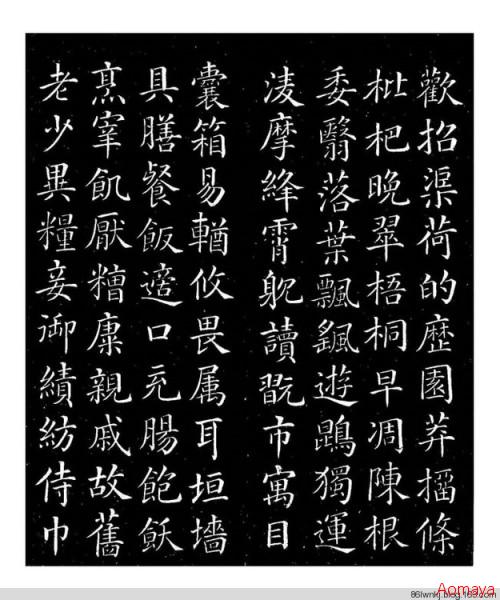 歡招渠荷的歷園莽㨨條
枇杷晚翠梧桐早凋陳根
委翳落葉飄颻遊鵾獨運
淩摩絳霄躭讀翫市寓目
囊箱易輶攸畏属耳垣墻
具膳餐飯適口充腸飽飫
烹宰飢厭糟糠親戚故舊
老少異糧妾御績紡侍巾
Aomaya